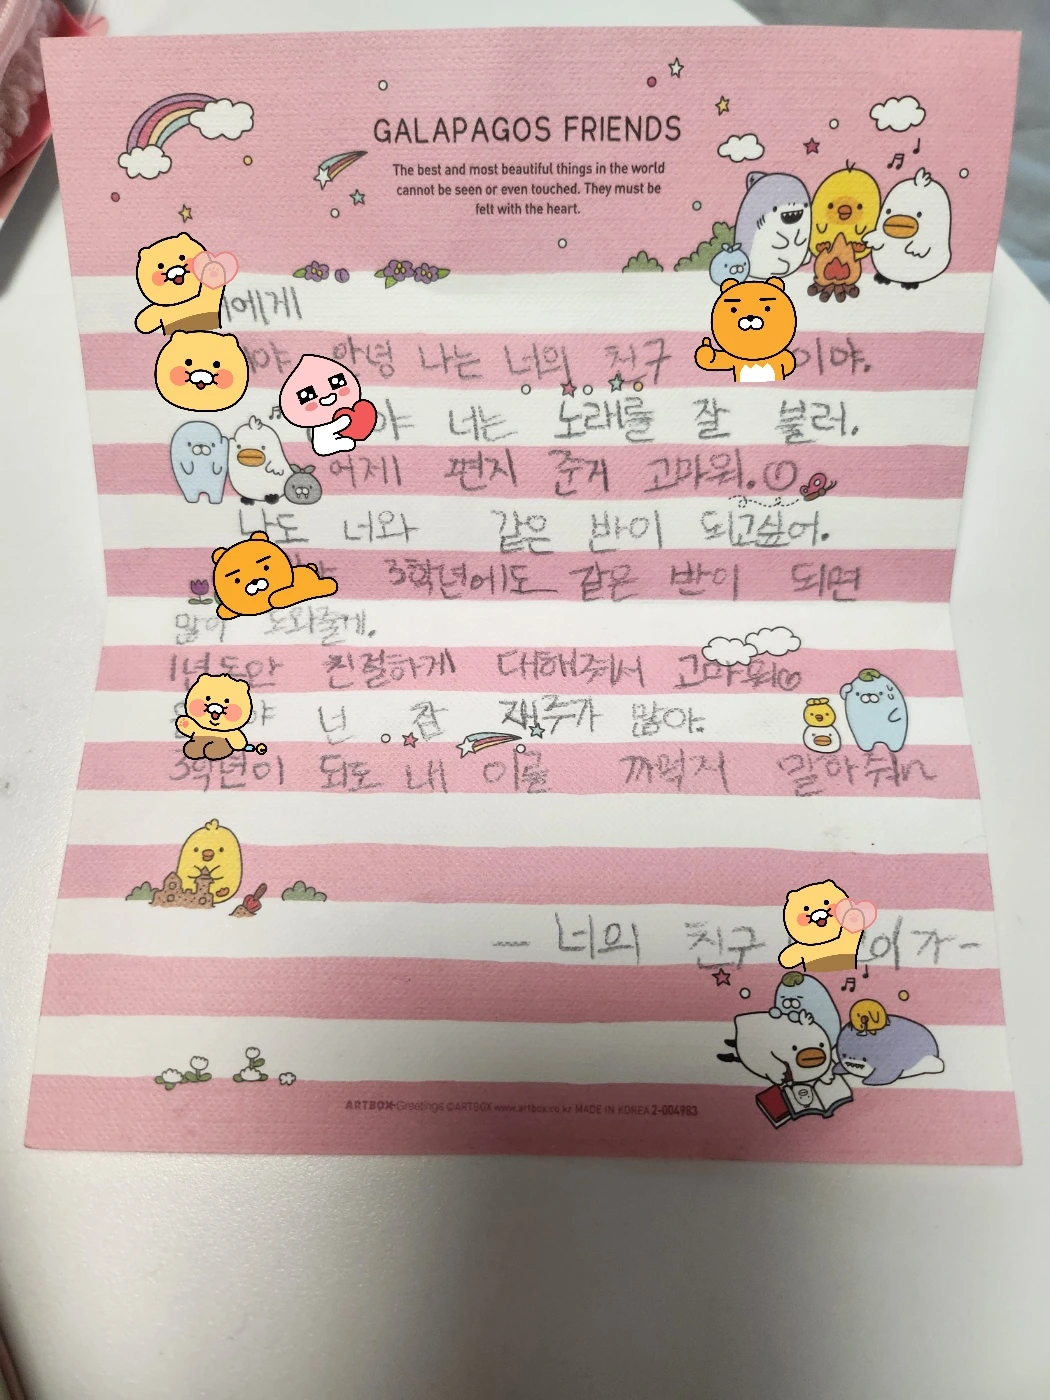 GALAPAGOS FRIENDS
The best and most beautiful things in the world
cannot be seen or even touched. They must be
felt with the heart.
에게
야 안녕 나는 너의 친구 이야.
야 너는 노래를 잘 불러.
어제 편지 준거 고마워.
나도 너와 같은 반이 되고싶어.
3학년에도 같은 반이 되면
많이 도와줄게.
1년동안 친절하게 대해줘서 고마워
야 넌 참 재주가 많아.
3학년이 되도 내 이름 까먹지 말아줘~
- 너의 친구 이가-
ARTBOX Greetings ©ARTBOX www.artbox.co.kr MADE IN KOREA 2-004983